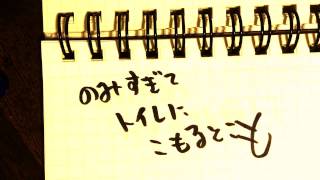 のみすぎて
トイレに
こもるとこも